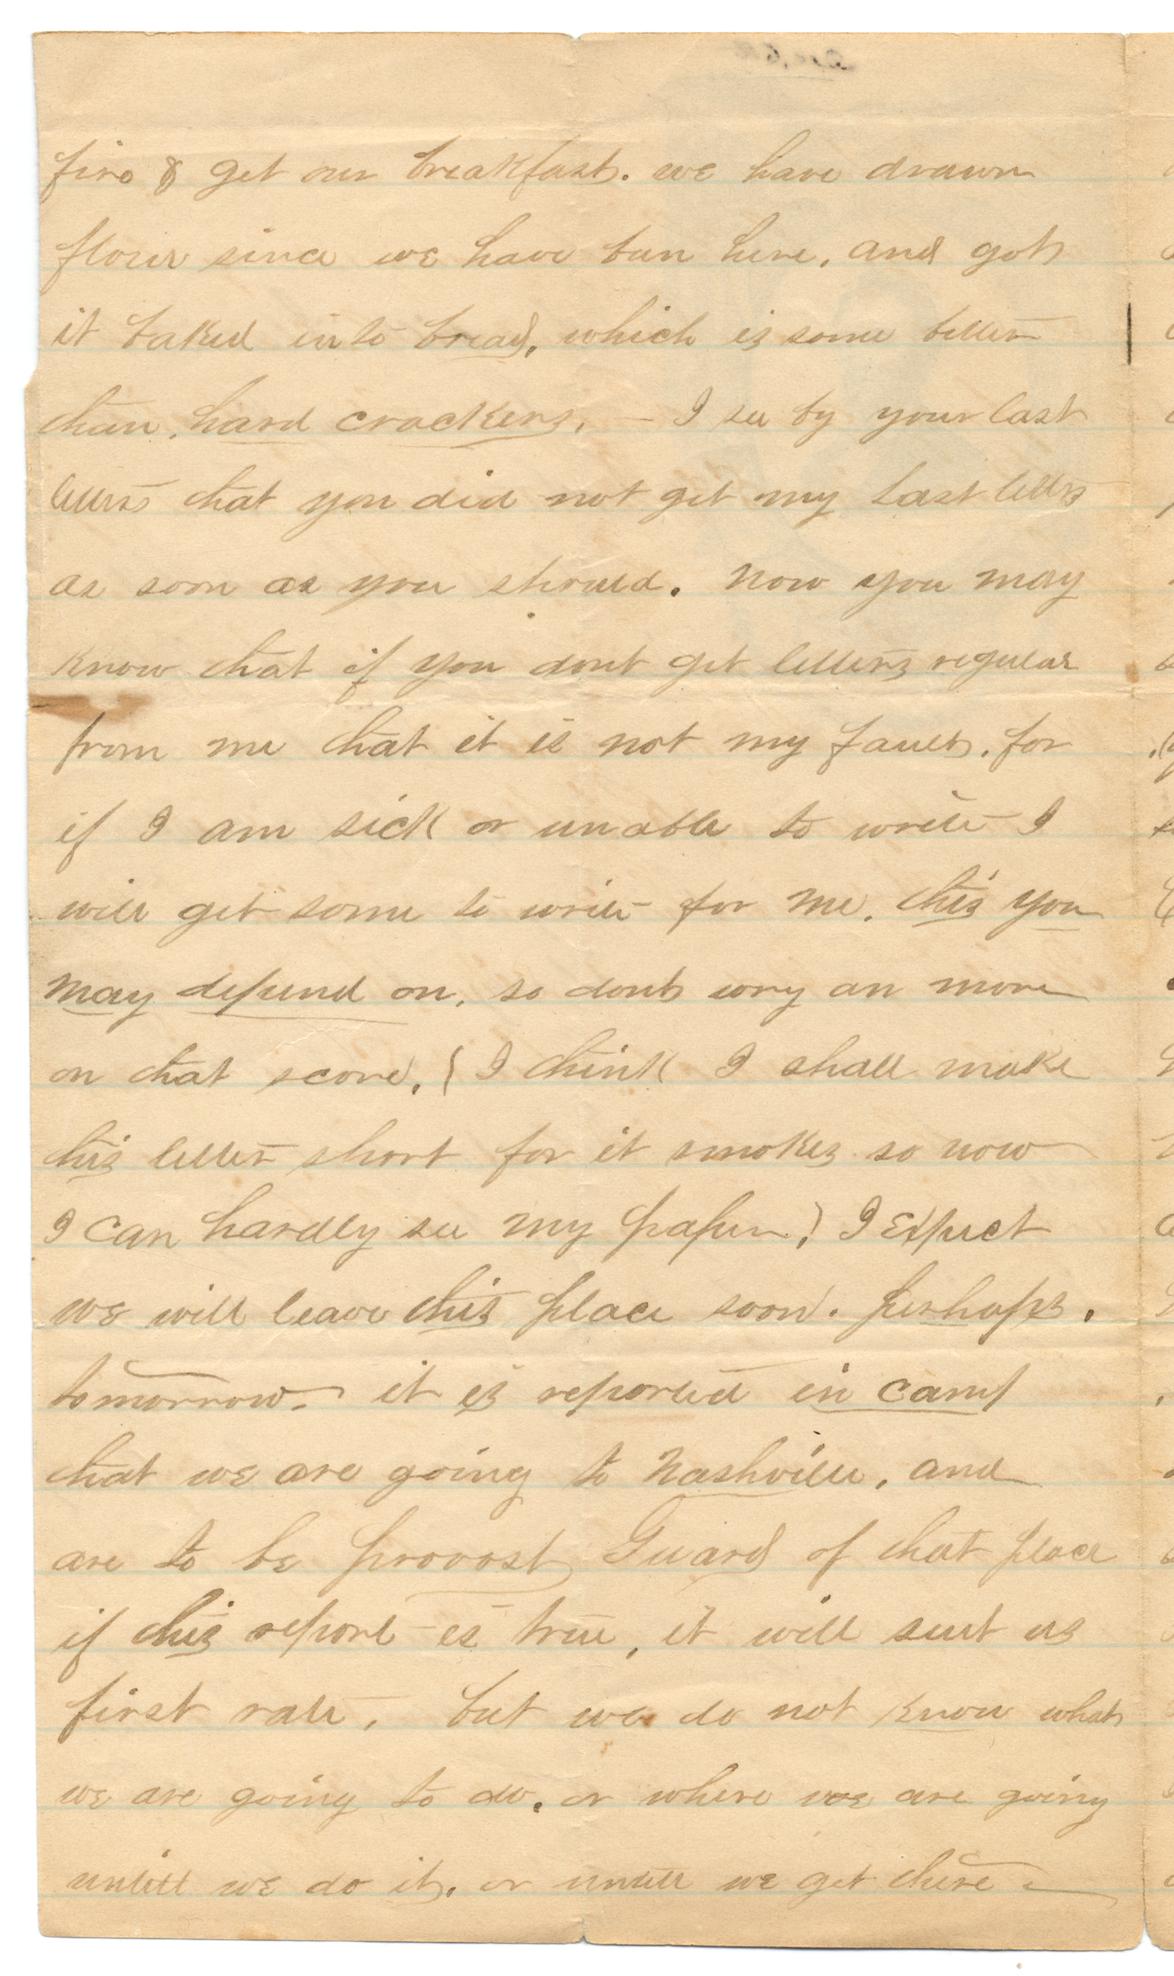 fire & get our breakfast. we have drawn
flour since we have bin here, and got
it baked into bread, which is some better
than, hard crackers, - I see by your last
letters that you did not get my last letters
as soon as you should. Now you may
know that if you dont get letters regular
from me that it is not my fault, for
if I am sick or unable to write I
will get some to write for me. this you
may depend on, so dont wory an more
on that score. ( I think I shall make
this letter short for it smokes so now
I can hardly see my paper,) I expect
we will leave this place soon. perhaps.
tomorrow. it is reported in camp
that we are going to Nashville, and
are to be provost Guard of that place
if this report is true, it will suit us
first rate, but we do not know what
we are going to do, or where we are going
untill we do it, or untill we get there